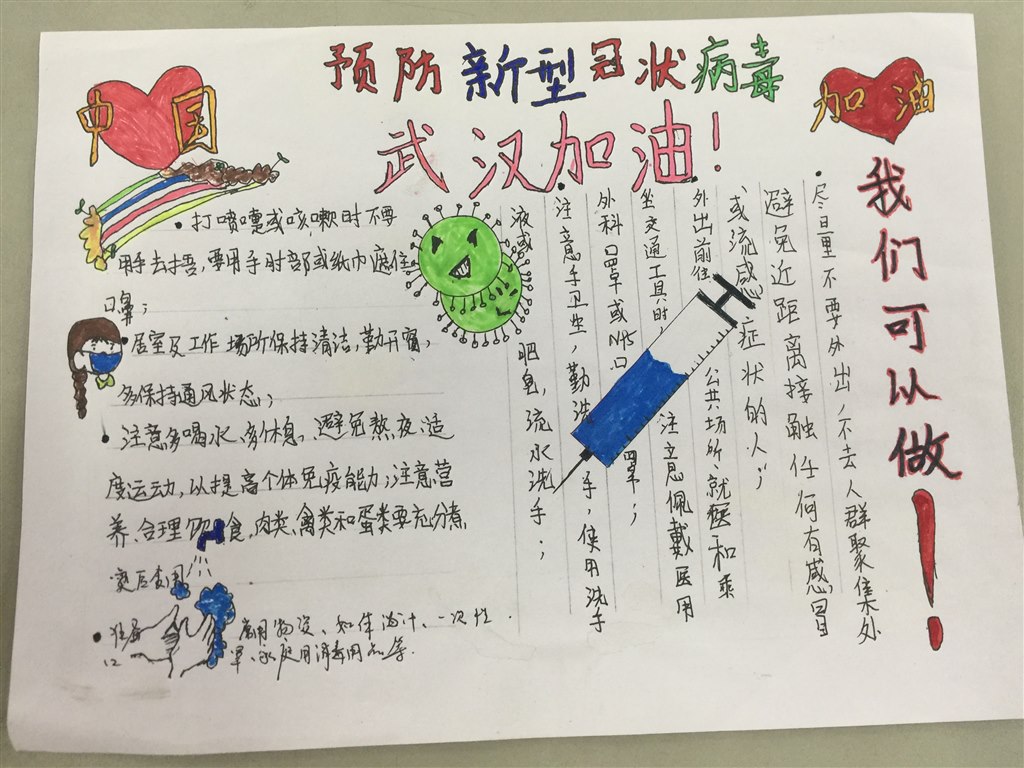 预防新型冠状病毒
武汉加油!
中国
加油
我们可以做!
• 尽量不要外出,不去人群聚集处
避免近距离接触任何有感冒
或流感症状的人;
• 外出前往公共场所、就医和乘
坐交通工具时,注意佩戴医用
外科口罩或N95口罩;
• 注意手卫生,勤洗手,使用洗手
液或肥皂,流水洗手;
• 打喷嚏或咳嗽时不要
用手去捂,要用手肘部或纸巾遮住
口鼻;
• 居室及工作场所保持清洁,勤开窗,
多保持通风状态;
• 注意多喝水、多休息、避免熬夜、适
度运动,以提高个体免疫能力;注意营
养、合理饮食,肉类、禽类和蛋类要充分煮
• 常用物资、如体温计、一次性
口罩、家庭用消毒用品等.